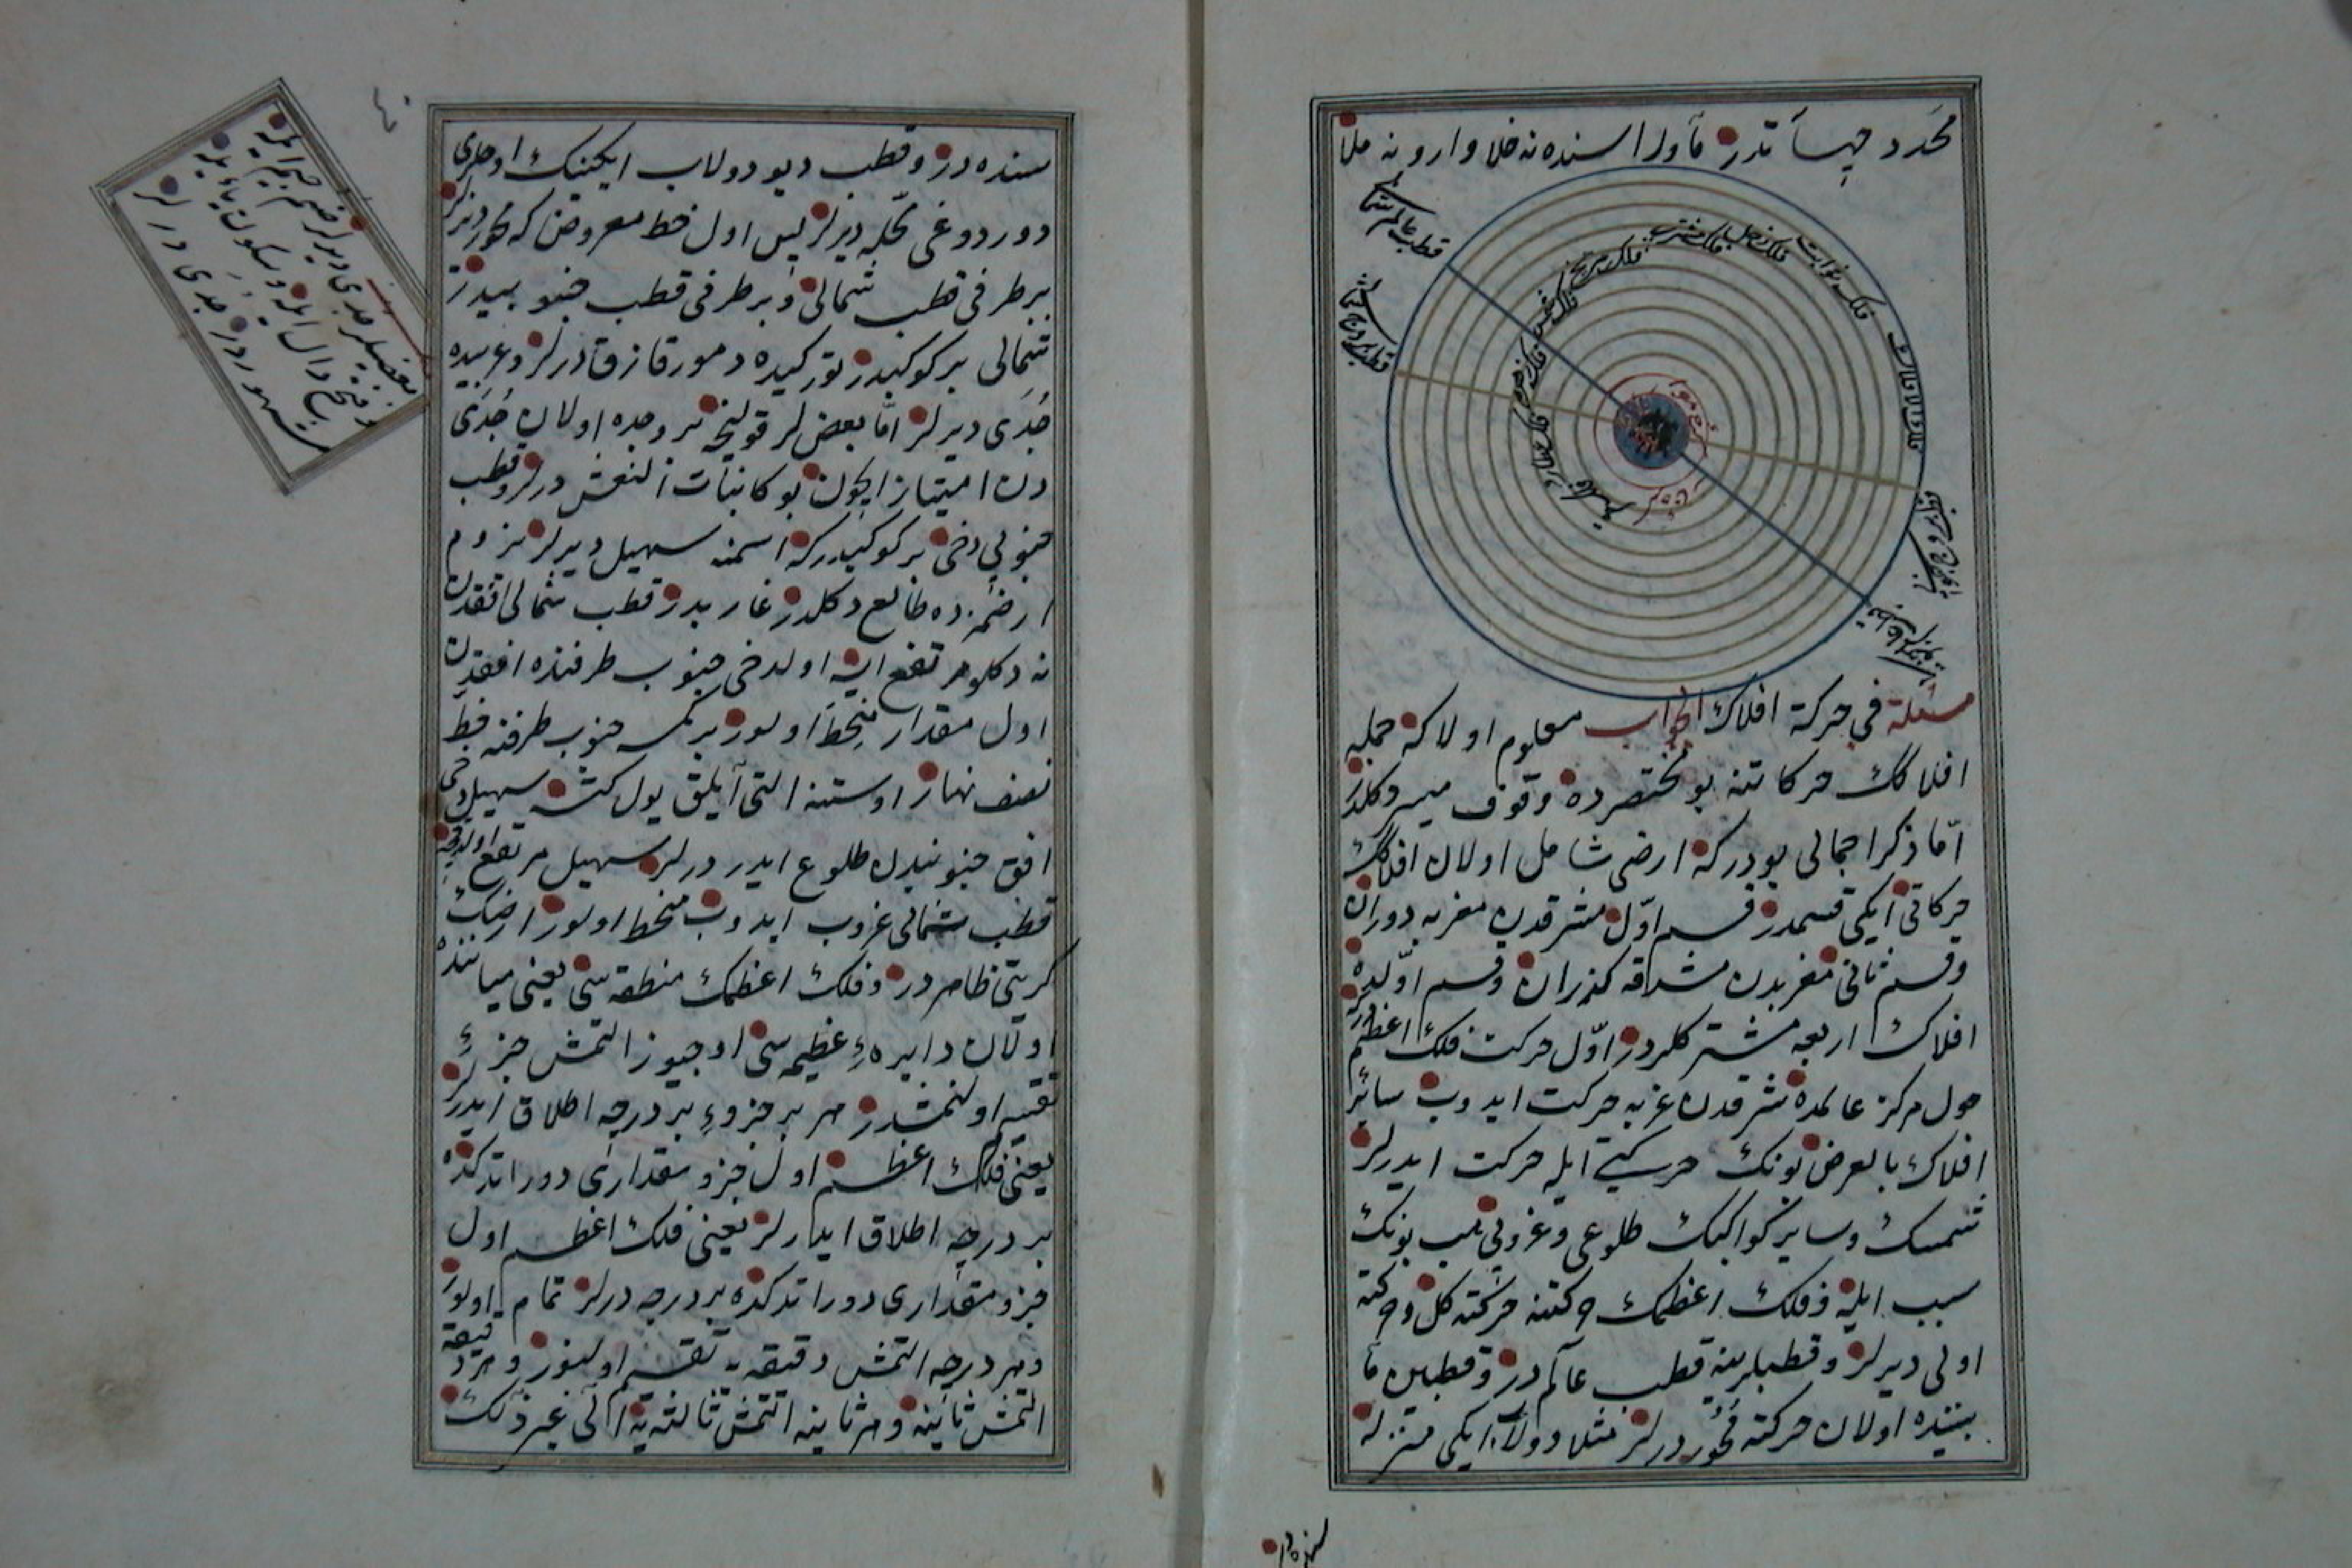 محدد جهاتدر ماوراسنده نه خلا وار و نه ملا
قطب عالم شمالی
قطب بروج شمالی
فلك ثوابت
فلك زحل
فلك مشتری
فلك مریخ
فلك شمس
فلك زهره
فلك عطارد
فلك قمر
كرهٔ نار
قطب بروج جنوبی
مسئلة فی حركة افلاك الجواب معلوم اولا كه جمله
افلاكك حركاتنه بو مختصرده وقوف میسر دكلدر
امّا ذكر اجمالی بودركه ارضی شامل اولان افلاكك
حركاتی ایكی قسمدر قسم اوّل مشرقدن مغربه دوران
وقسم ثانی مغربدن مشرقه كذران وقسم اوّلده
افلاك اربعه مشتركلردر اوّل حركت فلك اعظمدر
حول مركز عالمده شرقدن غربه حركت ایدوب سائر
افلاك بالعرض بونك حركتی ایله حركت ایدرلر
شمسك وسایر كواكبك طلوعی وغروبی هب بونك
سبب ایله و فلك اعظمك حركتنه حركت كل وحركت
اولی دیرلر وقطبلرینه قطب عالم درلر وقطبین ما
بیننده اولان حركته محور درلر مثلا دولاب ایكی منزله
سنده در
سنده در وقطب دیو دولاب ایكینك اوجلری
دوردوغی محلّه دیرلر پس اول خط معروض كه محور دیرلر
بر طرفی قطب شمالی وبر طرفی قطب جنوبیدر
شمالی بر كوكبدر توركیده دمور قازق درلر وعربیده
جدی دیرلر امّا بعضلر قولنجه بروجده اولان جدی
دن امتیاز ایچون بوكا بنات النعش درلر وقطب
جنوبی دخی بر كوكبدركه اسمنه سهیل دیرلر بزوم
ارضمزده طالع دكلدر غاربدر قطب شمالی افقدن
نه دكلو مرتفع ایسه اولدخی جنوب طرفنده افقدن
اول مقدار منحط اولور بر كمسه جنوب طرفنه خط
نصف نهار اوستنه التی آیلق یول كتسه سهیل دخی
افق جنوبیدن طلوع ایدر درلر سهیل مرتفع اولدقچه
قطب شمالی غروب ایدوب منحط اولور ارضك
كریتی ظاهردر وفلك اعظمك منطقه سی یعنی میاننده
اولان دایرهٔ عظیمه سی اوچیوز التمش جزئه
تقسیم اولنمشدر هر بر جزوء بر درجه اطلاق ایدرلر
یعنی فلك اعظم اول جزو مقداری دور اتدكده
بر درجه اطلاق ایدرلر یعنی فلك اعظم اول
جزو مقداری دور اتدكده بر درجه درلر تمام اولور
وهر درجه التمش دقیقه یه تقسیم اولنور وهر دقیقه
التمش ثانیه وهر ثانیه التمش ثالثه یه الی غیر ذلك
بعضیلر جدی دیرلر ضم جیم ایله
وفتح دال ایله وسكون یاء ایله
مشهوردر جدی درلر